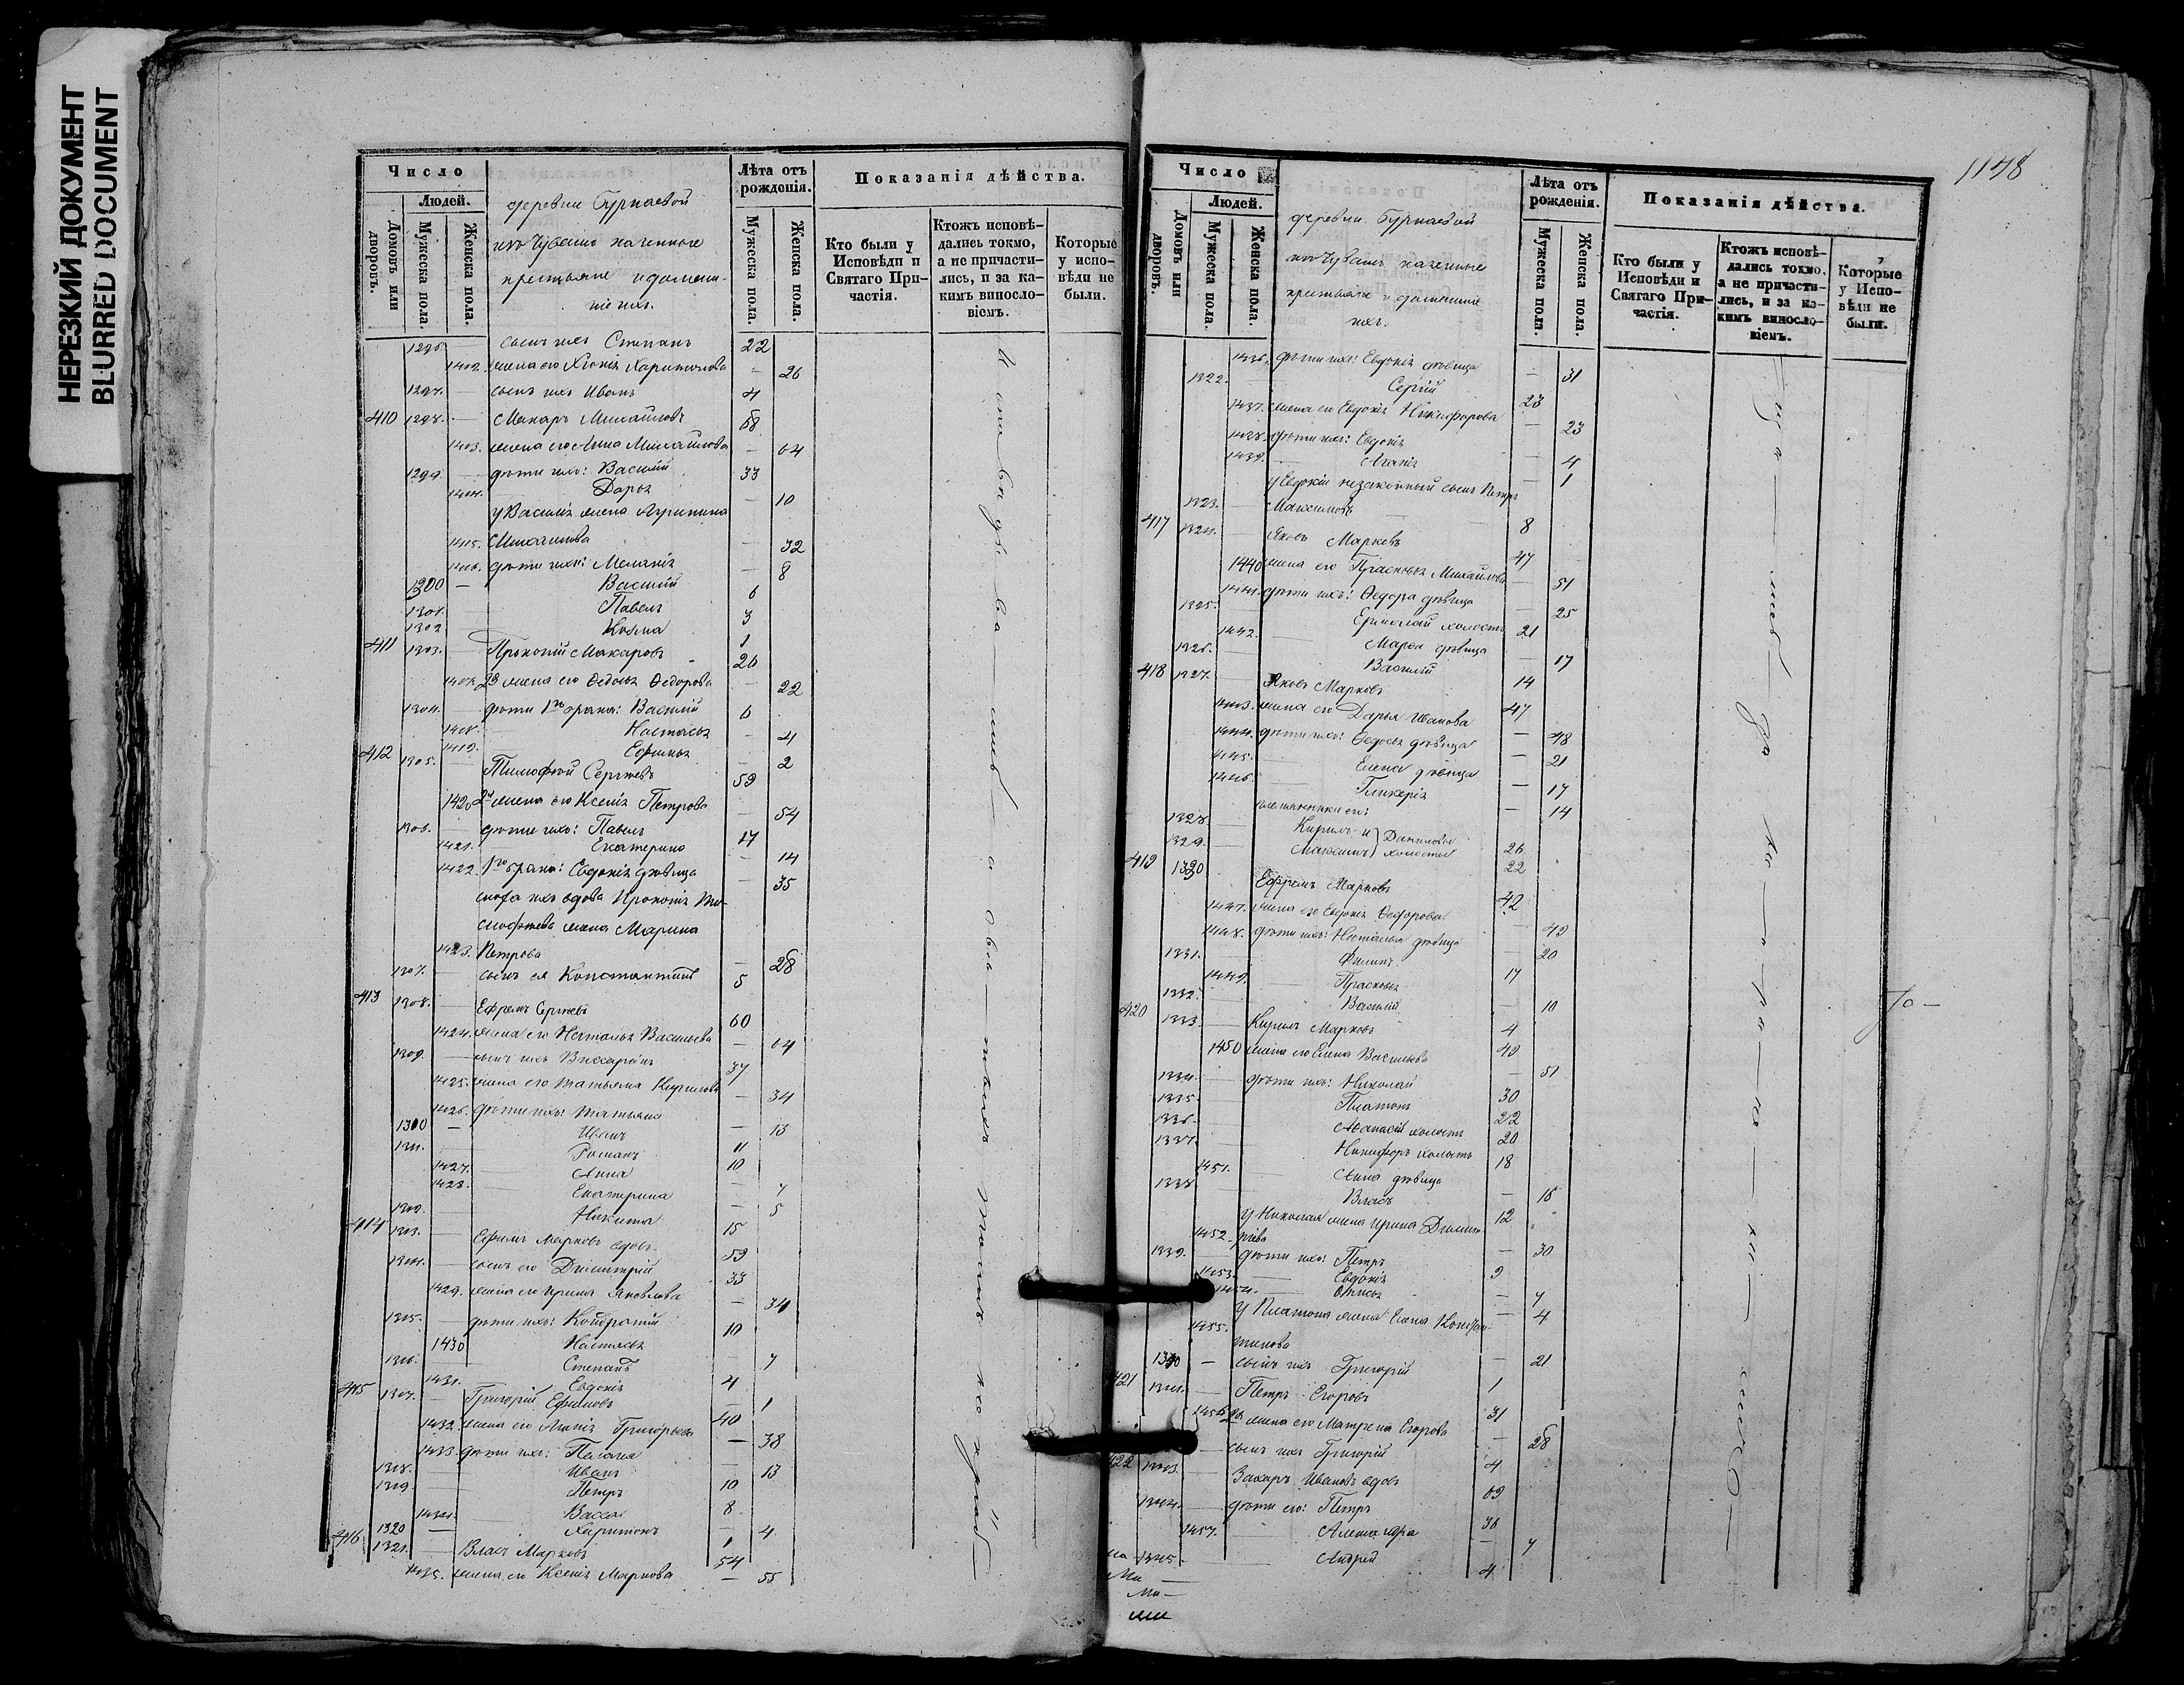 НЕРЕЗКИЙ ДОКУМЕНТ
BLURRED DOCUMENT
1148
Число
Людей.
Домовъ или дворовъ.
Мужеска пола.
Женска пола.
деревни Бурнаевой
изъ Чувашъ казенные
крестьяне и домаш-
ніе ихъ.
Лѣта отъ рожденія.
Мужеска пола.
Женска пола.
Показанія дѣйства.
Кто были у Исповѣди и Святаго Причастія.
Ктожъ исповѣдались токмо, а не причастились, и за какимъ винословіемъ.
Которые у исповѣди не были.
1296. сынъ ихъ Степанъ 22
1412. жена его Хіонія Харитонова – 26
1297. сынъ ихъ Иванъ 4
410 1298. Макаръ Михайловъ 68
1413. жена его Анна Михайлова – 64
1299. дѣти ихъ: Василій 33
1414. Дарья – 10
у Василія жена Агрипина
1415. Михайлова – 32
1416. дѣти ихъ: Меланія – 8
1300 Василій 6
1301. Павелъ 3
1302 Козма 1
411 1303. Прокопій Макаровъ 26
2я жена его Ѳедосья Ѳедорова – 22
1304. дѣти 1го брака: Василій 6
1418. Настасья – 4
1419. Ефимья – 2
412 1305. Тимофей Сергѣевъ 59
1420 2я жена его Ксенія Петрова – 54
1306. дѣти ихъ: Павелъ 17
1421. Екатерина – 14
1422. 1го брака: Евдокія дѣвица – 35
сноха ихъ вдова Прокопія Ти-
мофѣева жена Марина
1423. Петрова – 28
1307. сынъ ея Константинъ 5
413 1308. Ефремъ Сергѣевъ 60
1424. жена его Наталья Васильева – 64
1309. сынъ ихъ 37
1425. жена его Татьяна Кирилова – 34
1426. дѣти ихъ: Татьяна – 13
1310 Иванъ 11
1311. Романъ 10
1427. Анна – 7
1428. Екатерина – 5
Никита 15
414 1313. Ефимъ Марковъ вдовъ 59
1314. сынъ его Димитрій 33
1429. жена его Ирина Яковлова – 34
1315. дѣти ихъ: Кондратій 10
1430 Настасья – 7
1316. Степанъ 4
1431. Евдокія – 1
415 1317. Григорій Ефимовъ 40
1432. жена его Агапія Григорьева – 38
1433. дѣти ихъ: Пелагія – 13
1318. Иванъ 10
1319 Петръ 8
1434. Васса – 4
1320 Харитонъ 1
416 1321. Власъ Марковъ 54
1435. жена его Ксенія Маркова – 55
Число
Людей.
Домовъ или дворовъ.
Мужеска пола.
Женска пола.
деревни Бурнаевой
изъ Чувашъ казенные
крестьяне и домашніе
ихъ.
Лѣта отъ рожденія.
Мужеска пола.
Женска пола.
Показанія дѣйства.
Кто были у Исповѣди и Святаго Причастія.
Ктожъ исповѣдались токмо, а не причастились, и за какимъ винословіемъ.
Которые у Исповѣди не были.
1436. дѣти ихъ: Евдокія дѣвица – 31
1322. Сергій 23
1437. жена его Евдокія Никифорова – 23
1438. дѣти ихъ: Евдокія – 4
1439. Агапія – 1
у Евдокіи незаконный сынъ Петръ
1323. Максимовъ 8
417 1324. Яковъ Марковъ 47
1440 жена его Прасковья Михайлова – 51
1441. дѣти ихъ: Ѳедора дѣвица – 25
1325. Ермолай холостъ 21
1442. Марѳа дѣвица – 17
1326. Василій 14
418 1327. Яковъ Марковъ 47
1443. жена его Дарья Иванова – 48
1444. дѣти ихъ: Ѳедосья дѣвица – 21
1445. Елена дѣвица – 17
1446. Гликерія – 14
племянники его:
1328. Кирилъ и } Даниловы 26
1329. Максимъ } холосты 22
419 1330 Ефремъ Марковъ 42
1447. жена его Евдокія Ѳедорова – 49
1448. дѣти ихъ: Наталья дѣвица – 20
1331. Филипъ 17
1449. Прасковья – 10
1332. Василій 4
420 1333. Кирилъ Марковъ 49
1450 жена его Елена Васильева – 51
1334. дѣти ихъ: Николай 30
1335. Платонъ 22
1336. Аѳанасій холостъ 20
1337. Никифоръ холостъ 18
1451. Анна дѣвица – 16
1338 Власъ 12
у Николая жена Ирина Димит-
1452. ріева – 30
1339. дѣти ихъ: Петръ 9
1453. Евдокія – 7
1454. – 4
у Платона жена Елена Констан-
1455. тинова – 21
1340 сынъ ихъ Григорій 1
421 1341. Петръ Егоровъ 31
1456 2я жена его Матрена Егорова – 28
сынъ ихъ Григорій 4
422 1343. Захаръ Ивановъ вдовъ 69
1344. дѣти его: Петръ 36
1457. Александра – 7
1345. Андрей 4